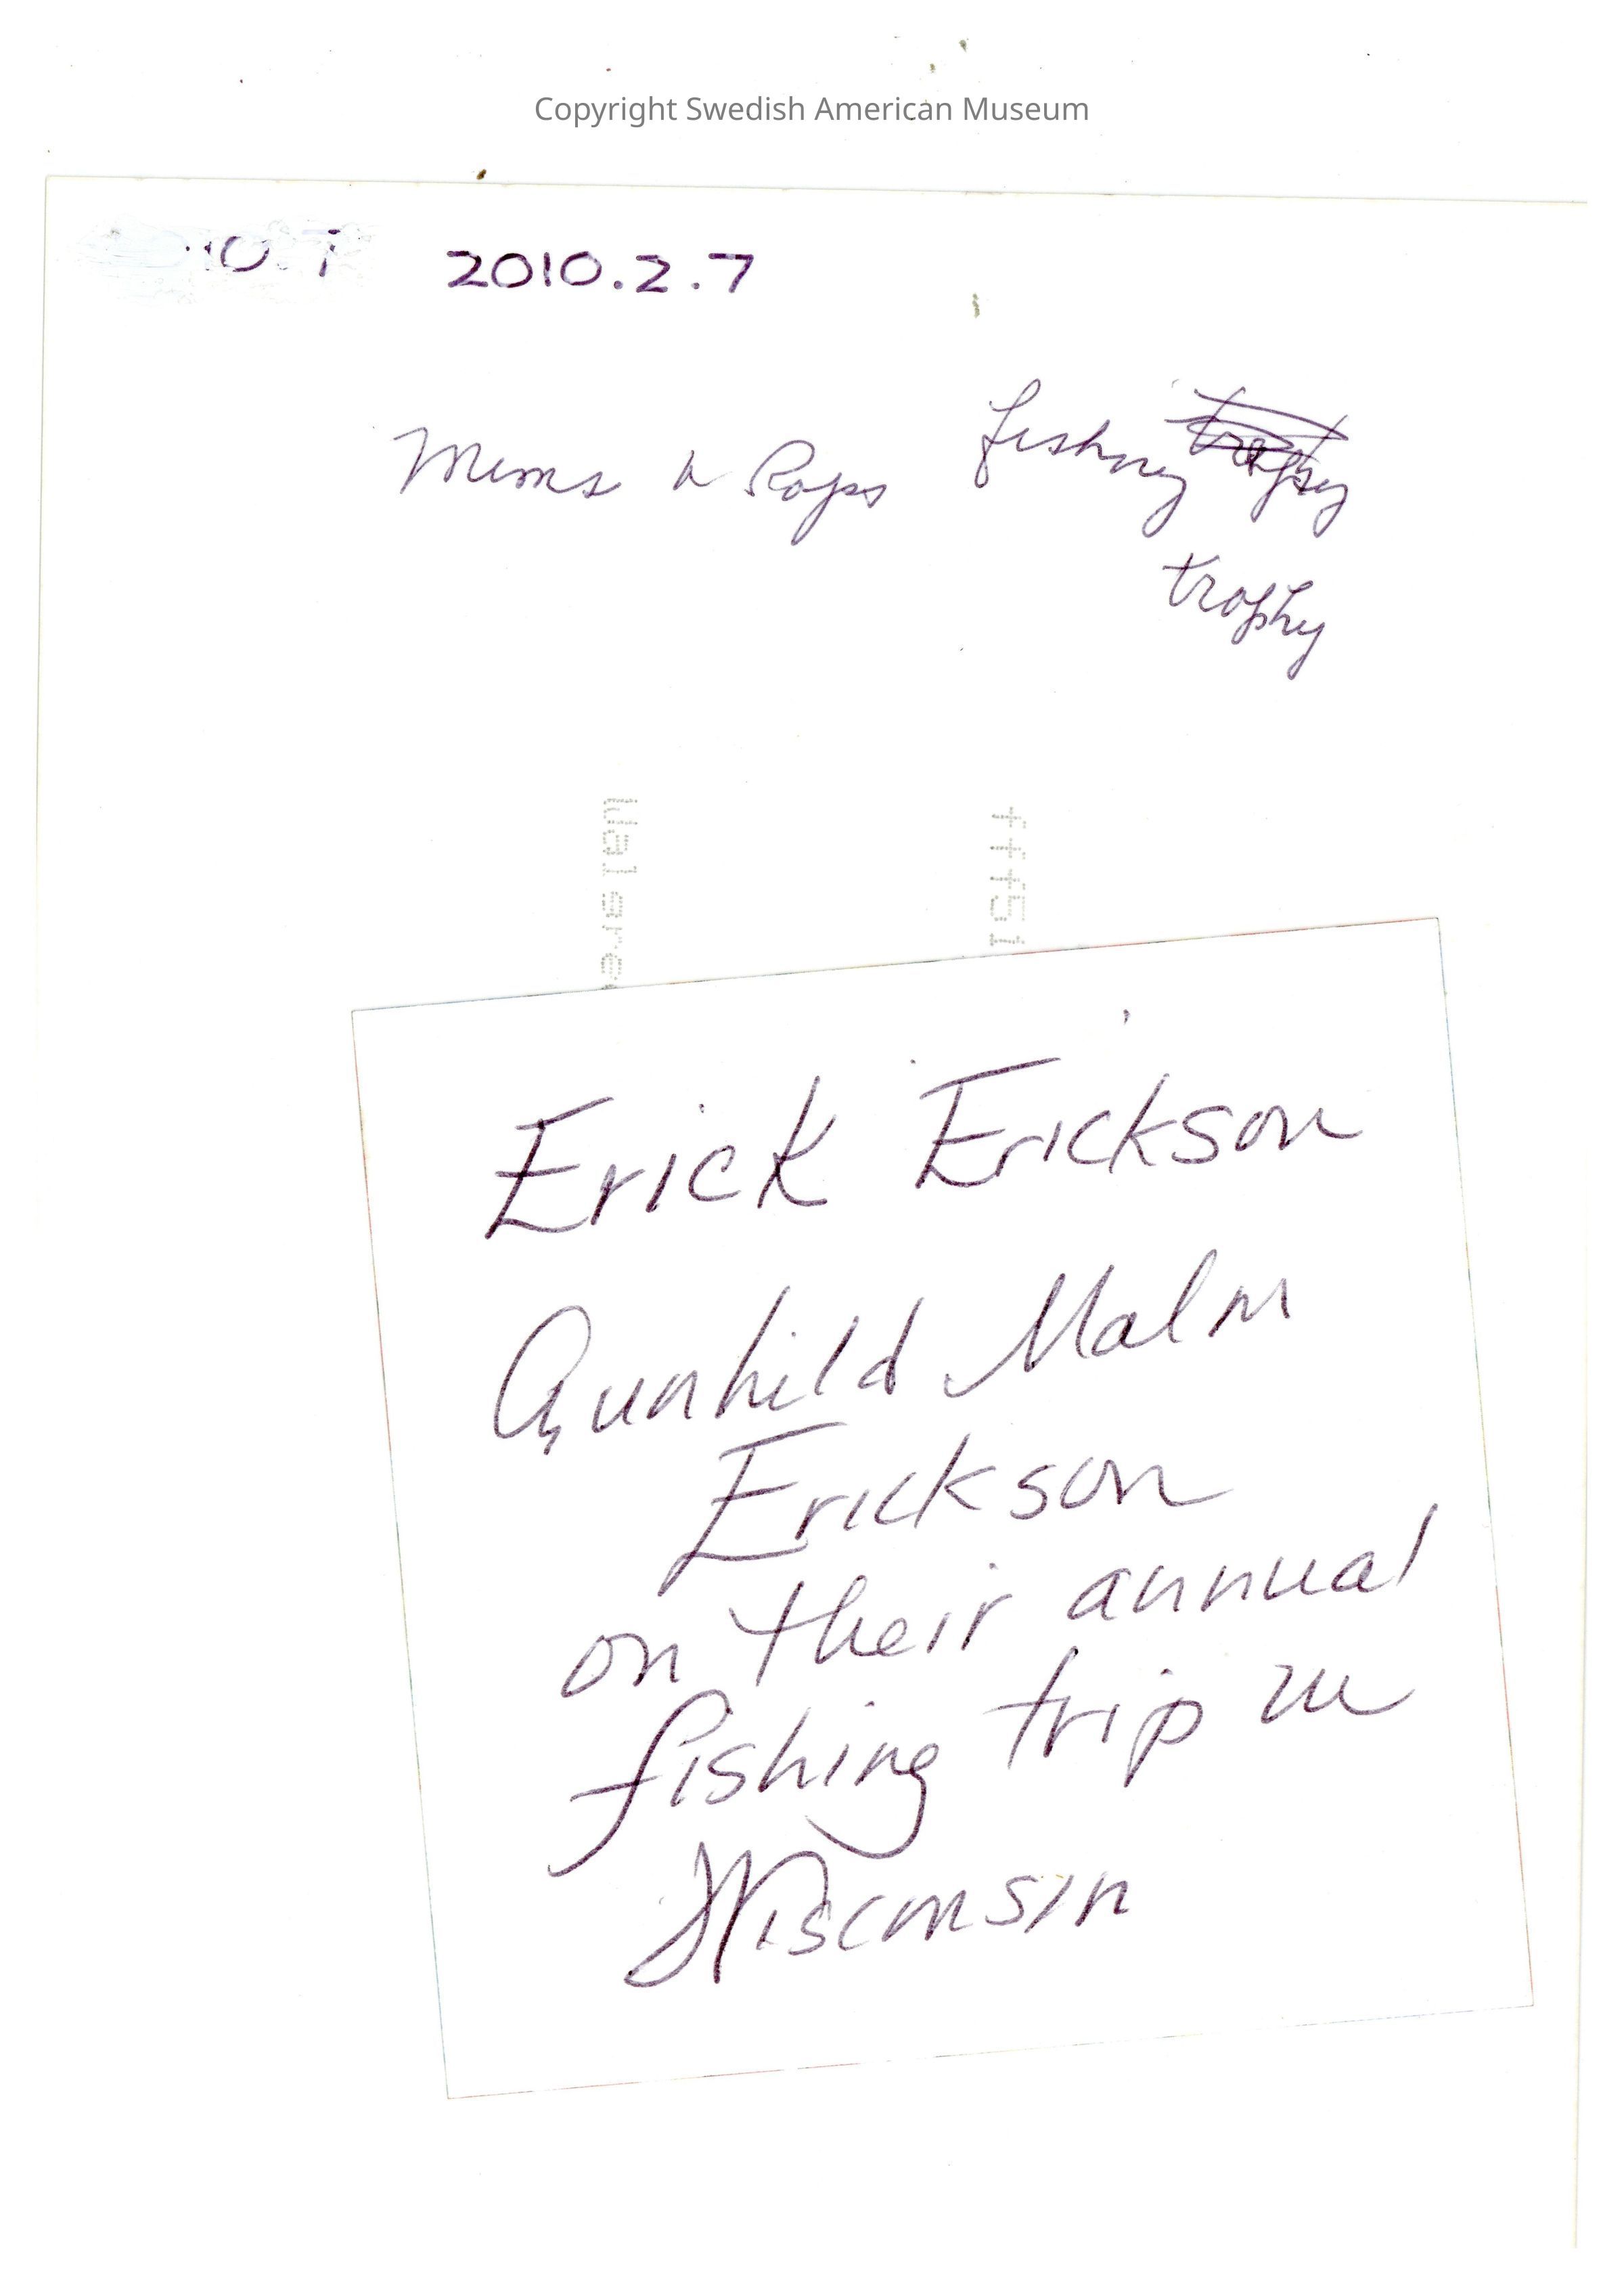 Copyright Swedish American Museum
2010.2.7
Mims n Pops fishing
trophy
Erick Erickson
Gunhild Malm
Erickson
on their annual
fishing trip in
Wisconsin